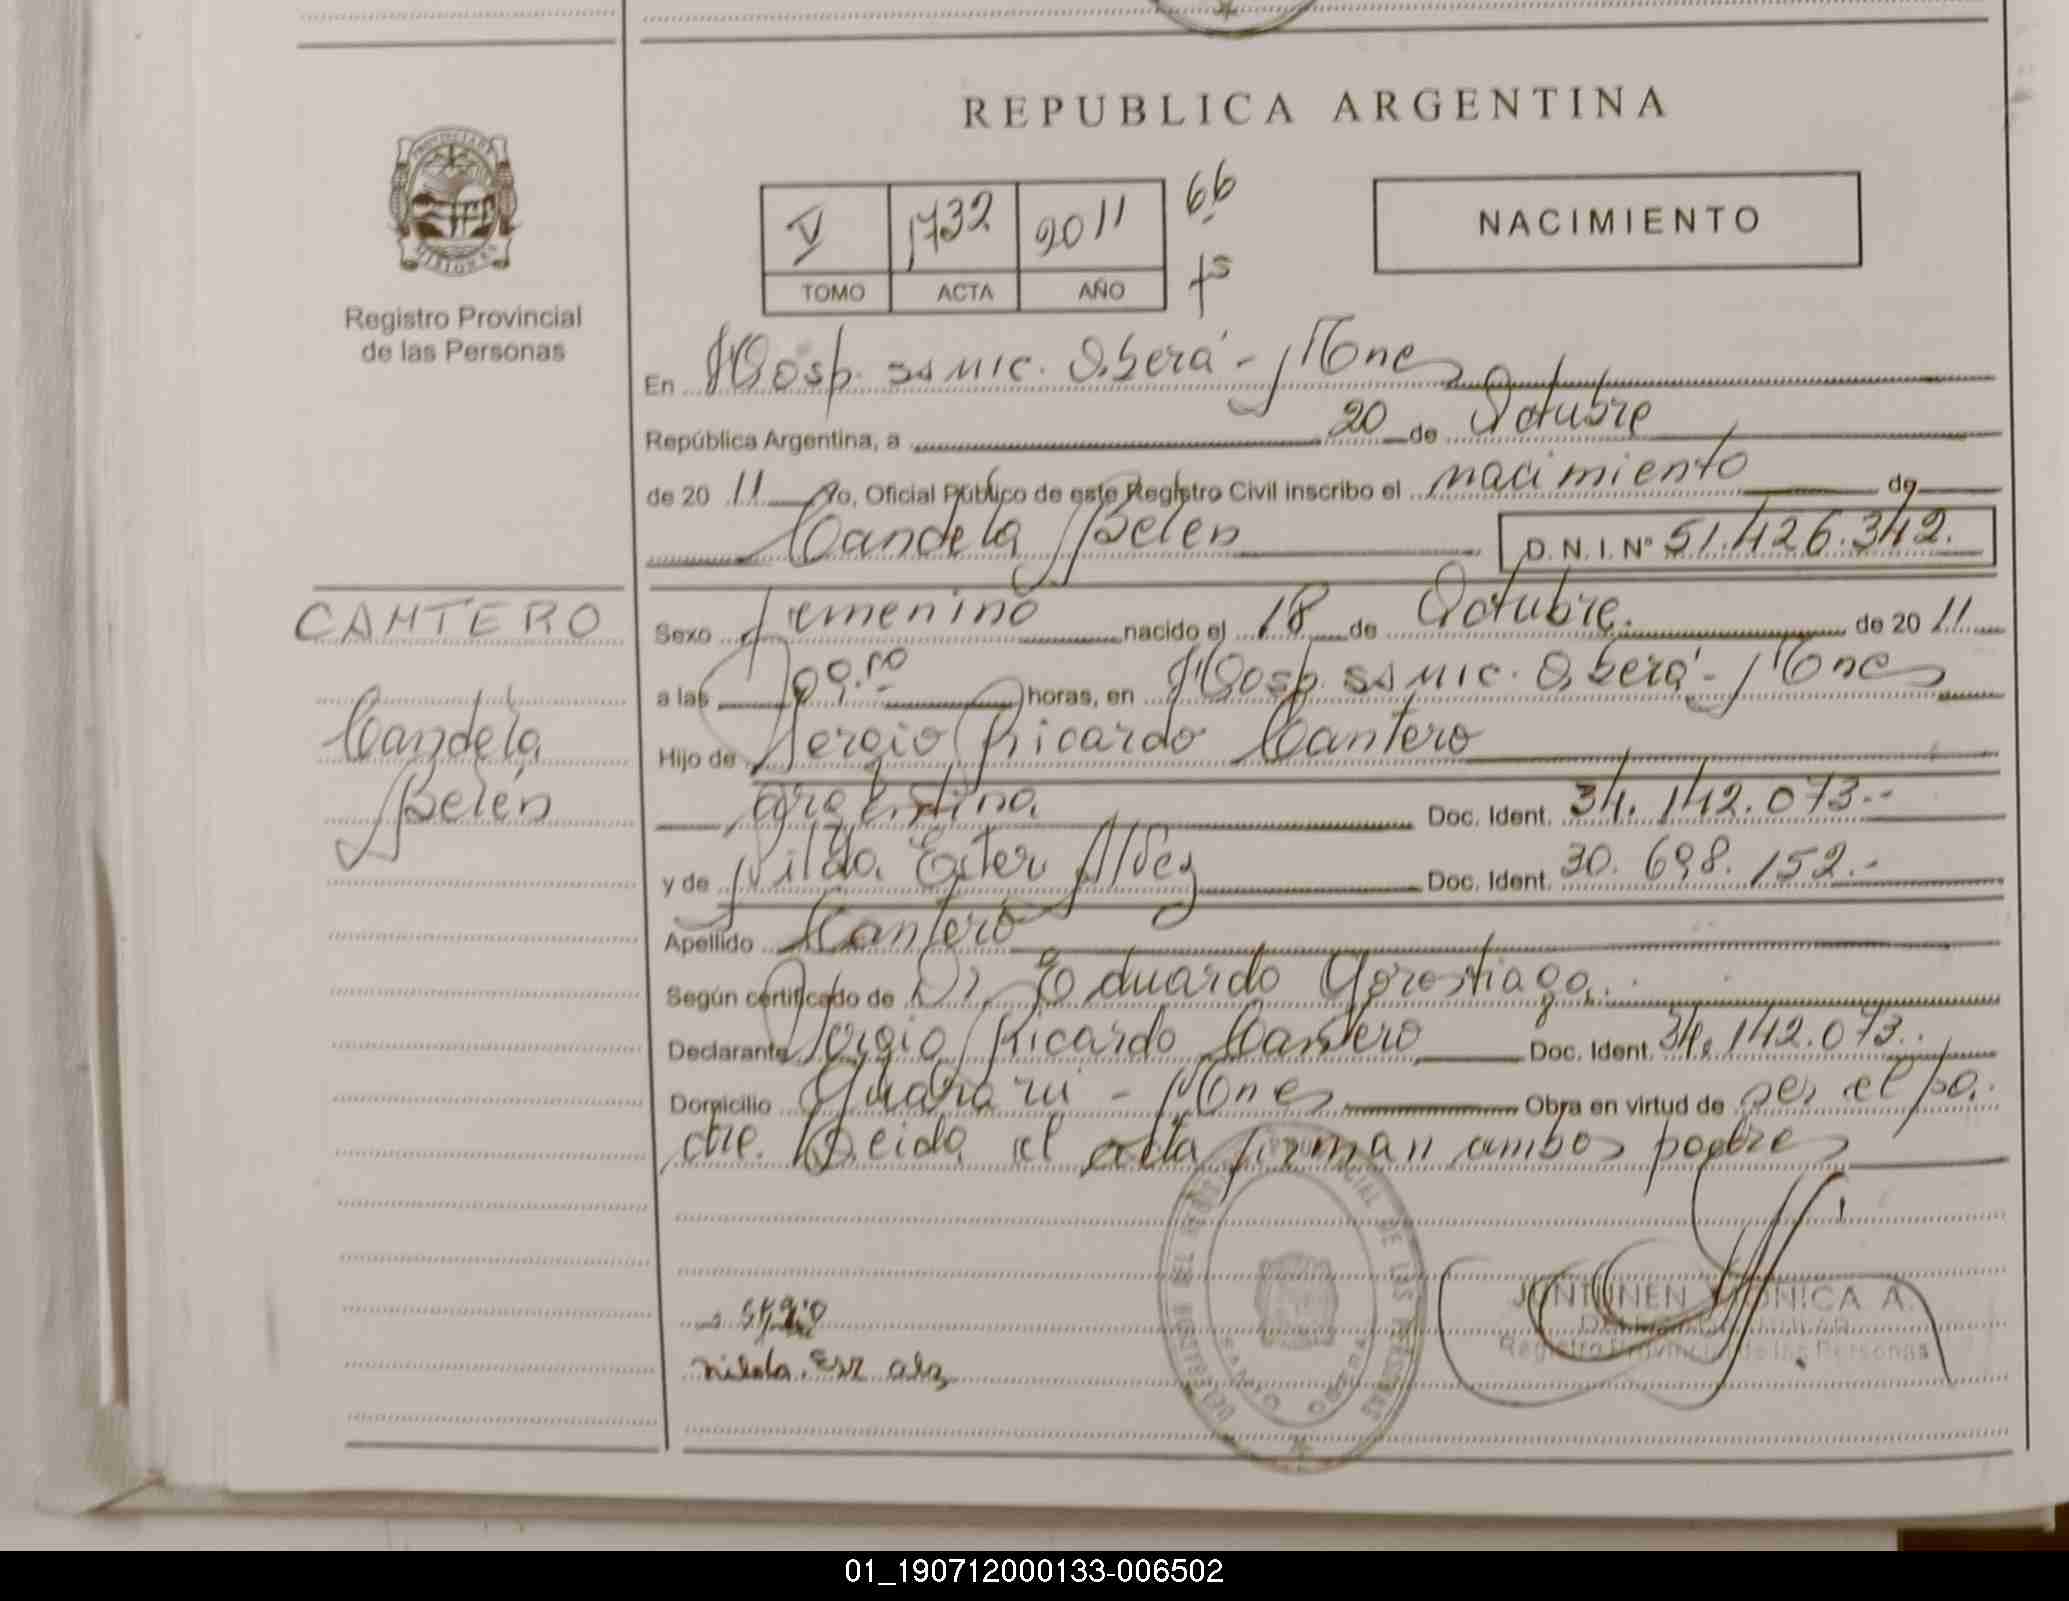 REPUBLICA ARGENTINA
Registro Provincial
de las Personas
V 1732 2011 66
TOMO ACTA AÑO fs
NACIMIENTO
En Hosp. SAMIC. Oberá - Mnes
República Argentina, a 20 de Octubre
de 20 11 Yo, Oficial Público de este Registro Civil inscribo el nacimiento de
Candela Belén D.N.I. Nº 51.426.342.
CANTERO
Candela
Belén
Sexo femenino nacido el 18 de Octubre. de 20 11
a las horas, en Hosp. SAMIC. Oberá - Mnes
Hijo de Sergio Ricardo Cantero
argentina Doc. Ident. 34.142.073.-
y de Nilda Ester Alvez Doc. Ident. 30.698.152.-
Apellido Cantero
Según certificado de Dr. Eduardo Gorostiaga.
Declarante Sergio Ricardo Cantero Doc. Ident. 34.142.073.
Domicilio Guaraní - Mnes Obra en virtud de ser el pa.
dre. Leida el acta firman ambos padres
JUNTUNEN MONICA A.
Registro Provincial de las Personas
01_190712000133-006502